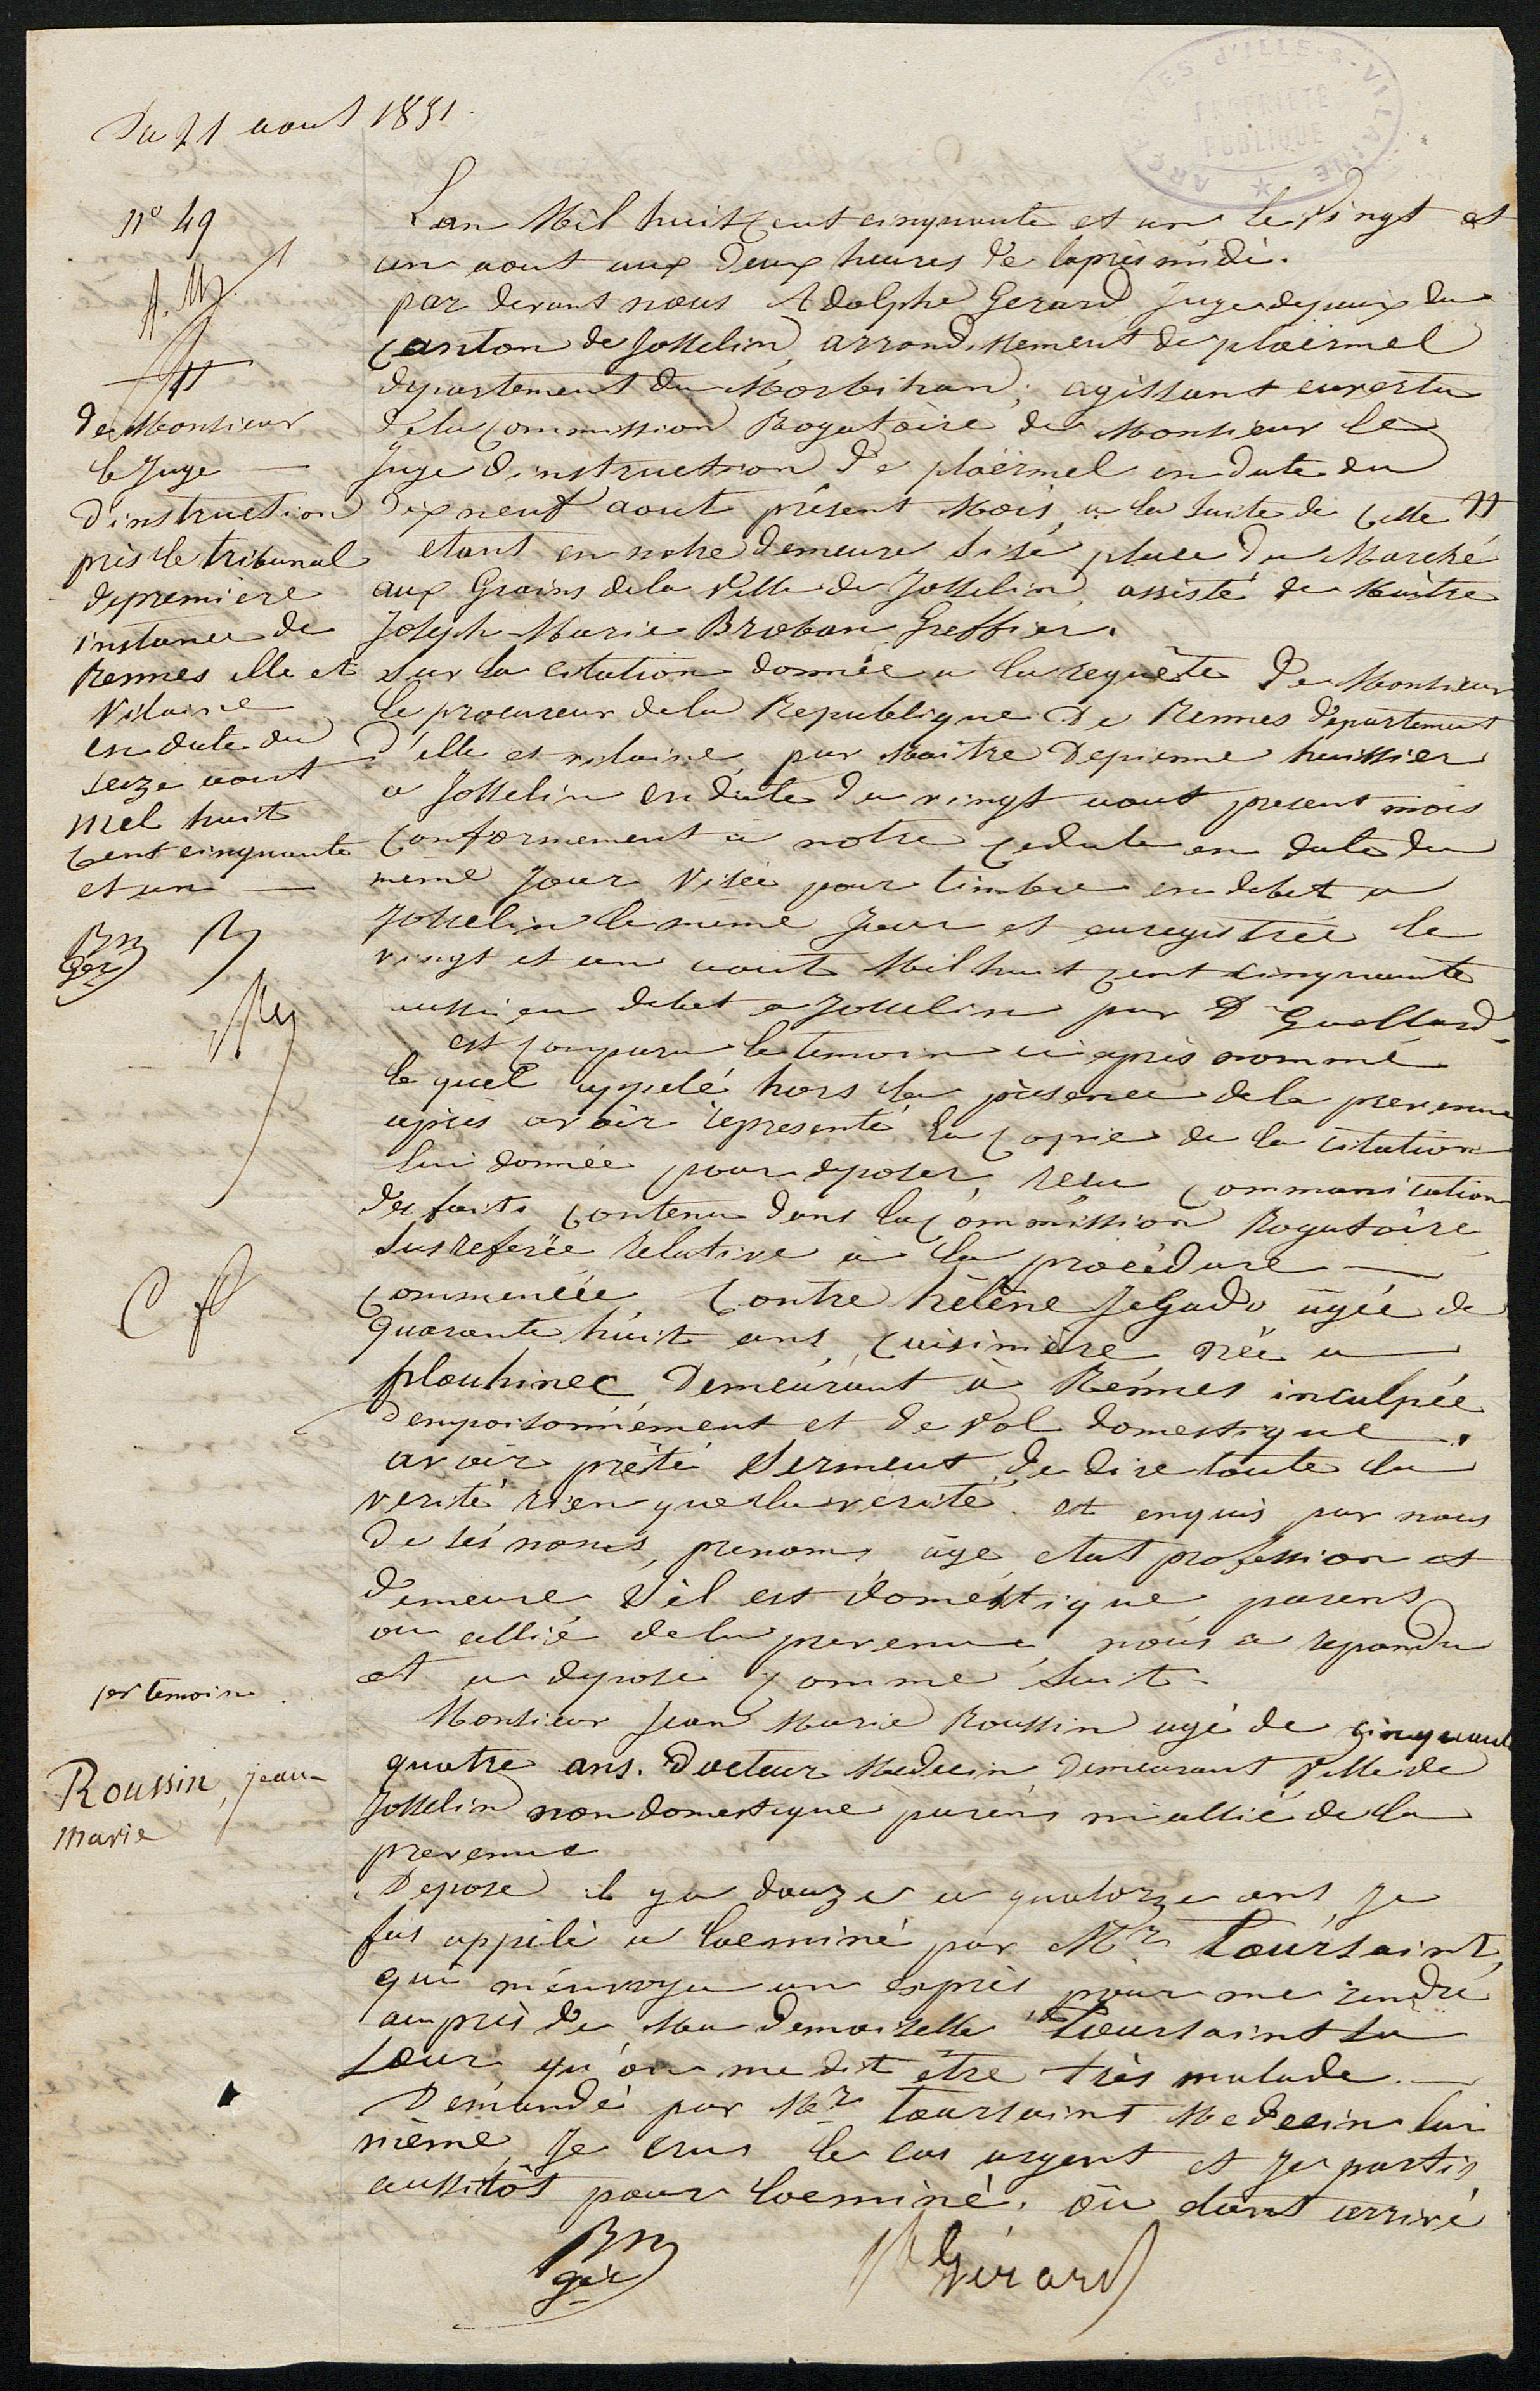 ARCHIVES D'ILLE-&-VILAINE
PROPRIÉTÉ
PUBLIQUE
Du 21 aout 1851.
N° 49
Lan Mil huit Cent cinquante et un le Vingt et
un aout aux deux heures de laprès midi.
par devant nous Adolphe Gerard Juge depaix du
Canton de Josselin, arrondissement de ploërmel
departement du Morbihan, agissant envertu
dela Commission Rogatoire de Monsieur le
Juge d'instruction de ploërmel en date du
dix neuf aout présent Mois, a la suite de Celle #
etant en notre demeure sise place du Marché
aux Grains dela Ville de Josselin, assisté de Maître
Joseph Marie Broban Greffier.
Sur la citation donnée a la requête de Monsieur
le procureur dela Republique de Rennes departement
d'ille et vilaine, par Maître Depienne huissier
a Josselin en date du vingt aout present mois
Conformement à notre Cedule en date du
meme Jour Visée pour timbre en debet a
Josselin le meme Jour et enregistrée le
vingt et un aout Mil huit cent cinquante
aussi en debet a Josselin par D Guellard.
est Comparu le temoin ci après nommé
le quel appelé hors la présence dela prevenue
après avoir representé la Copie de la citation
lui donnée pour deposer, recu Communication
des faits Contenu dans la Commission Rogatoire
susreferée relative à la procédure —
Commencée Contre hélène Jegado agée de
quarante huit ans, Cuisinière née a
plouhinec demeurant à Rennes inculpée
d'empoisonnement et de vol domestique.
avoir prêté Serment de dire toute la
verité rien que la verité. et enquis par nous
de ses noms, prenoms, age, etat profession et
demeure, s'il est domestique parens
ou allié dela prevenue, nous a repondu
et a deposé Comme suit
Monsieur Jean Marie Roussin agé de cinquante
quatre ans. Docteur Medecin, demeurant Ville de
Josselin non domestique parens ni allié de la
prevenue
Depose il y a douze a quatorze ans, Je
fus appelé a locminé par Mr Toursaint,
qui m'envoya un exprès pour me rendre
auprès de Mademoiselle Toursaint sa
Soeur, qu'on me dit être très malade. —
Demandé par Mr Toursaint Medecin lui
même, Je crus le cas urgent et Je partis
aussitôt pour locminé. où etant arrivé
#
de Monsieur
le Juge —
d'instruction
près le tribunal
depremière
instance de
Rennes ille et
Vilaine
en date du
seize aout
mil huit
Cent cinquante
et un —
1er temoin.
Roussin, jean-
marie
Gérard